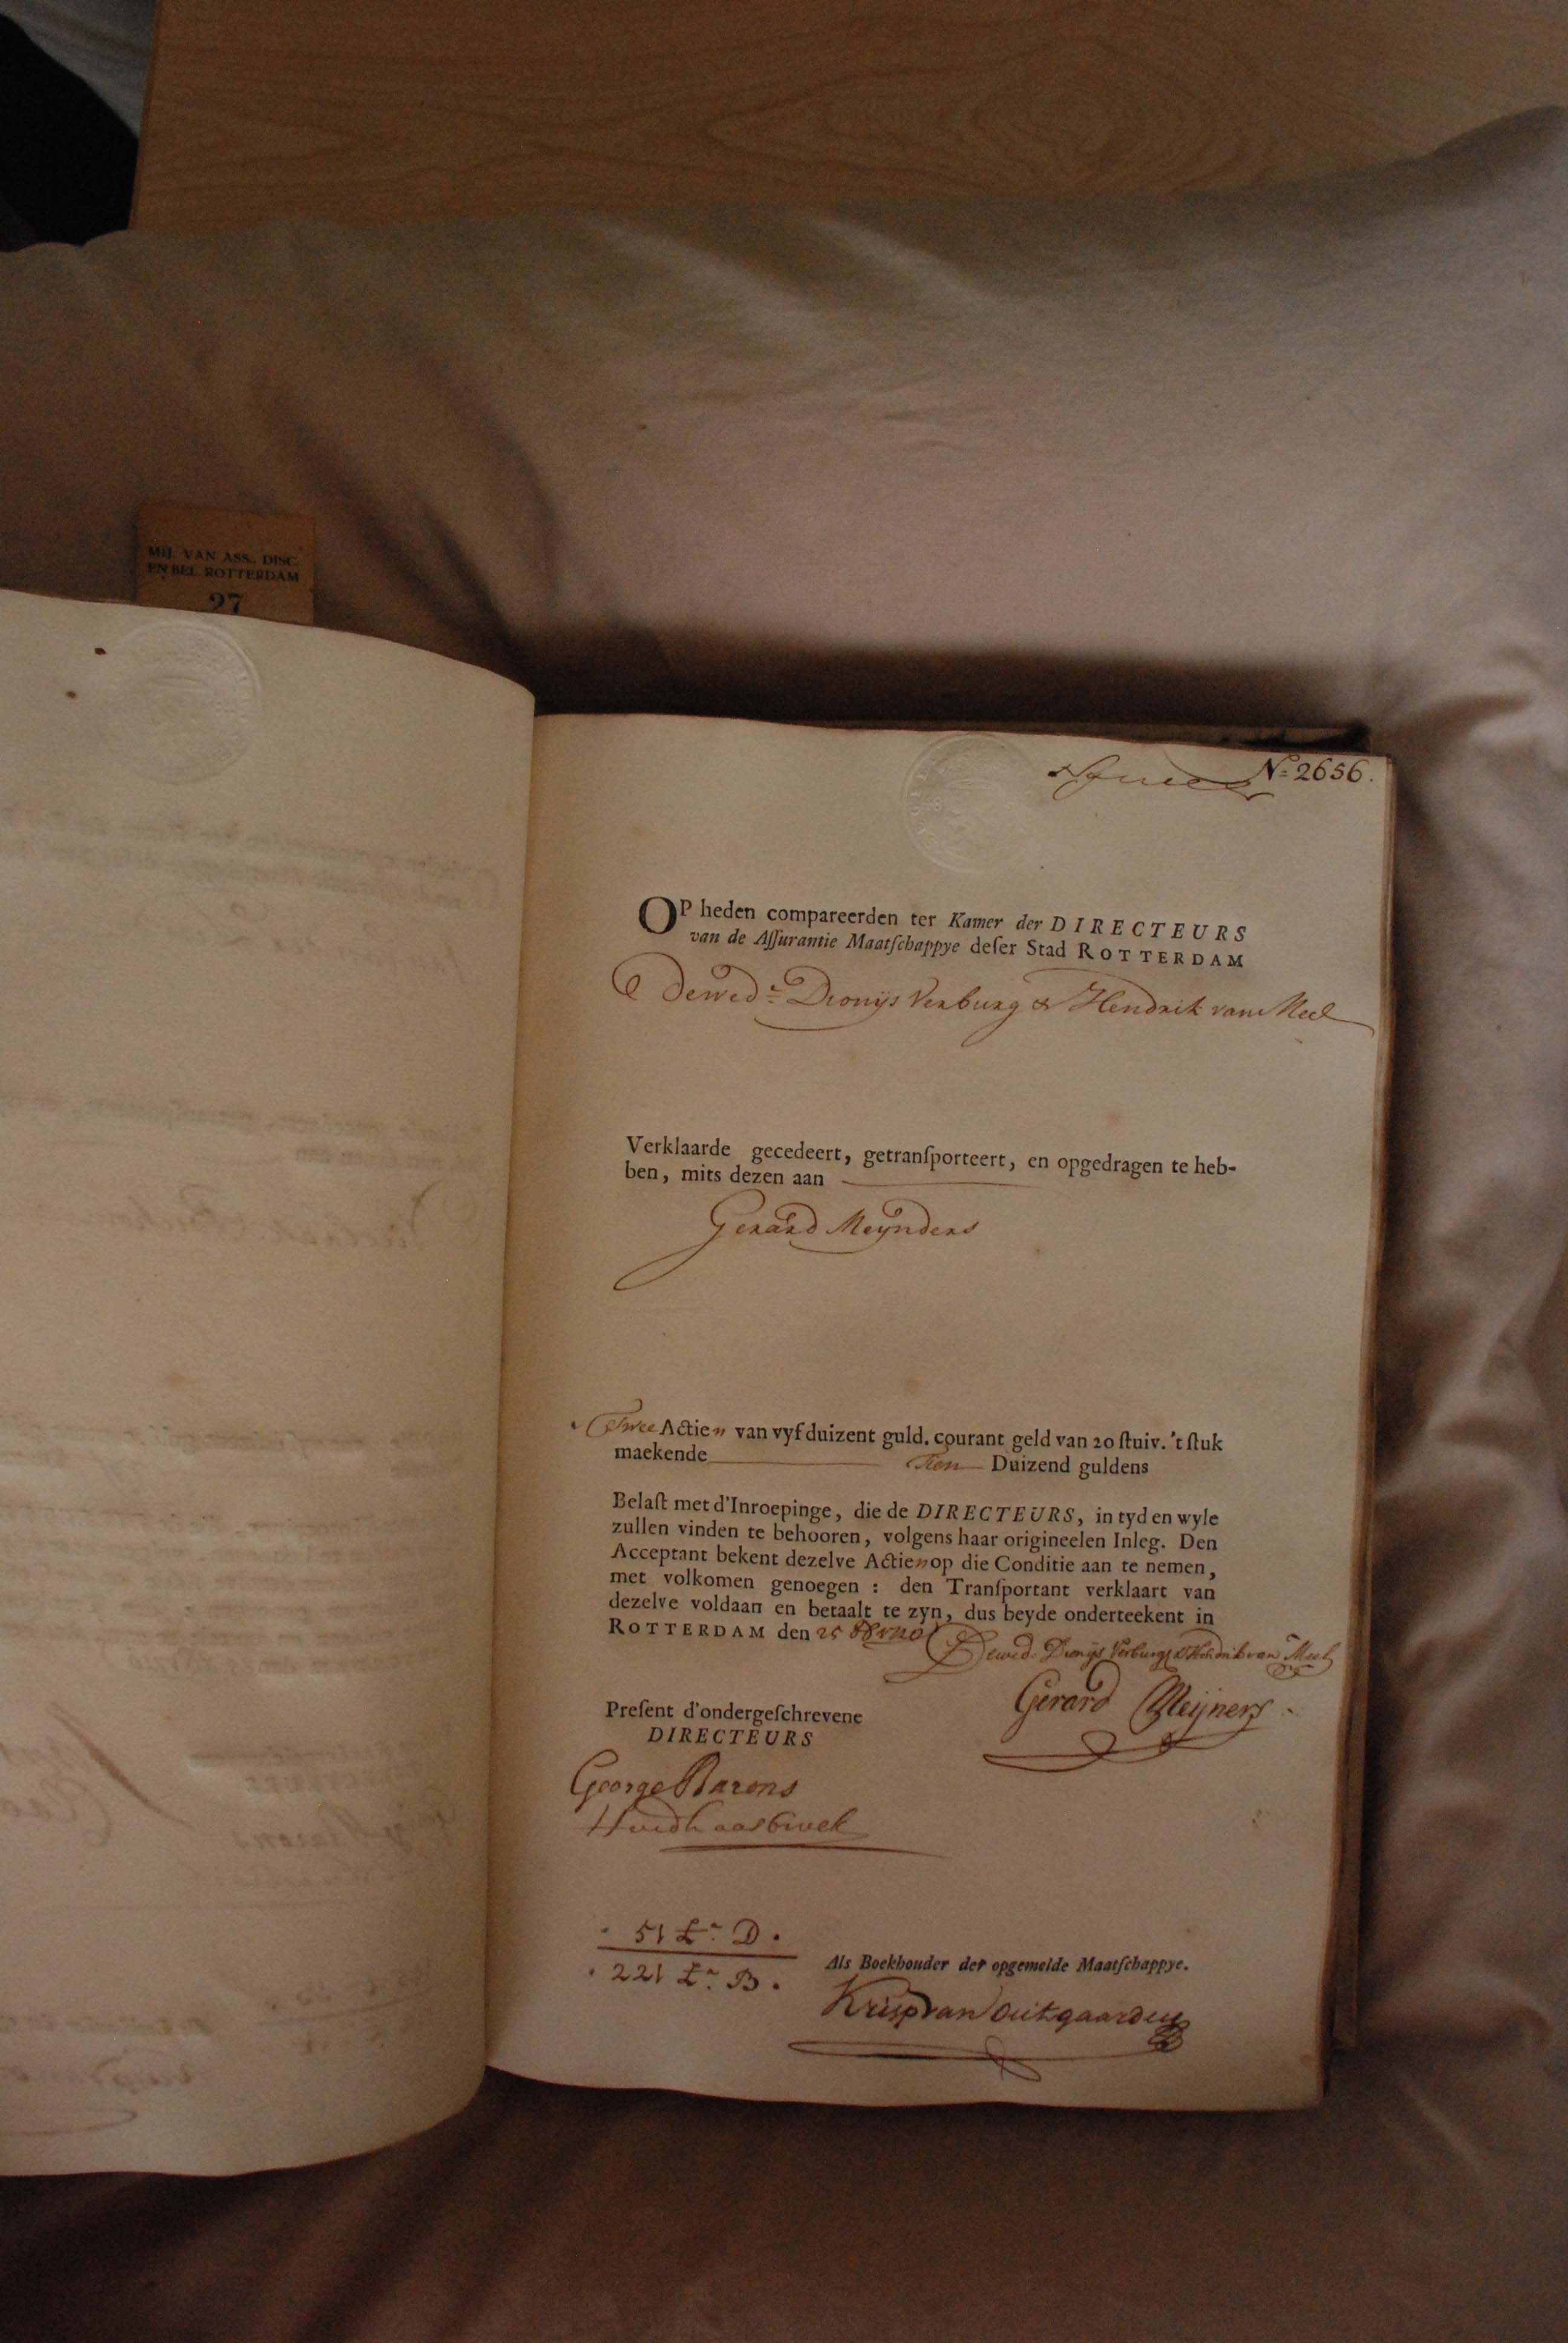 MIJ. VAN ASS., DISC.
EN BEL. ROTTERDAM
27
No. 2656.
OP heden compareerden ter Kamer der DIRECTEURS
van de Aſſurantie Maatſchappye deſer Stad ROTTERDAM
De wed:e Dionijs Verburg & Hendrik van Meel
Verklaarde gecedeert, getranſporteert, en opgedragen te heb-
ben, mits dezen aan
Gerard Meynders
Twee Actien van vyf duizent guld. courant geld van 20 ſtuiv. 't ſtuk
maekende Tien Duizend guldens
Belaſt met d'Inroepinge, die de DIRECTEURS, in tyd en wyle
zullen vinden te behooren, volgens haar origineelen Inleg. Den
Acceptant bekent dezelve Actien op die Conditie aan te nemen,
met volkomen genoegen : den Tranſportant verklaart van
dezelve voldaan en betaalt te zyn, dus beyde onderteekent in
ROTTERDAM den 25
De wed. Dionijs Verburg & Hendrik van Meel
Gerard Meijners
Preſent d'ondergeſchrevene
DIRECTEURS
George Barons
51 L.a D.
221 L.a B.
Als Boekhouder der opgemelde Maatſchappye.
Krisp van Outgaarden